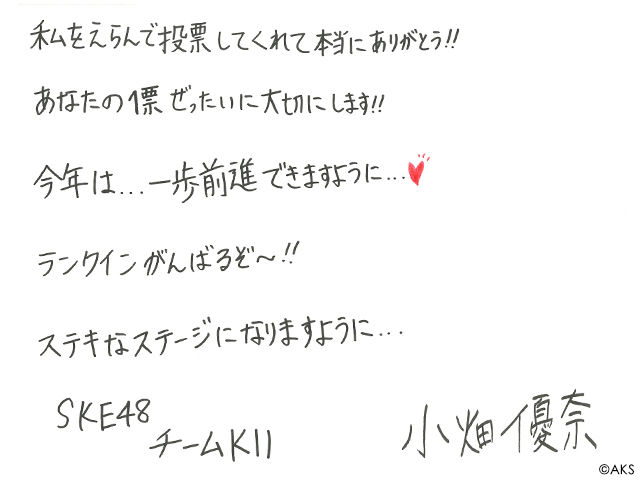 私をえらんで投票してくれて本当にありがとう!!
あなたの1票ぜったいに大切にします!!
今年は...一歩前進できますように...
ランクインがんばるぞ〜!!
ステキなステージになりますように...
SKE48
チームKII
小畑優奈
©AKS